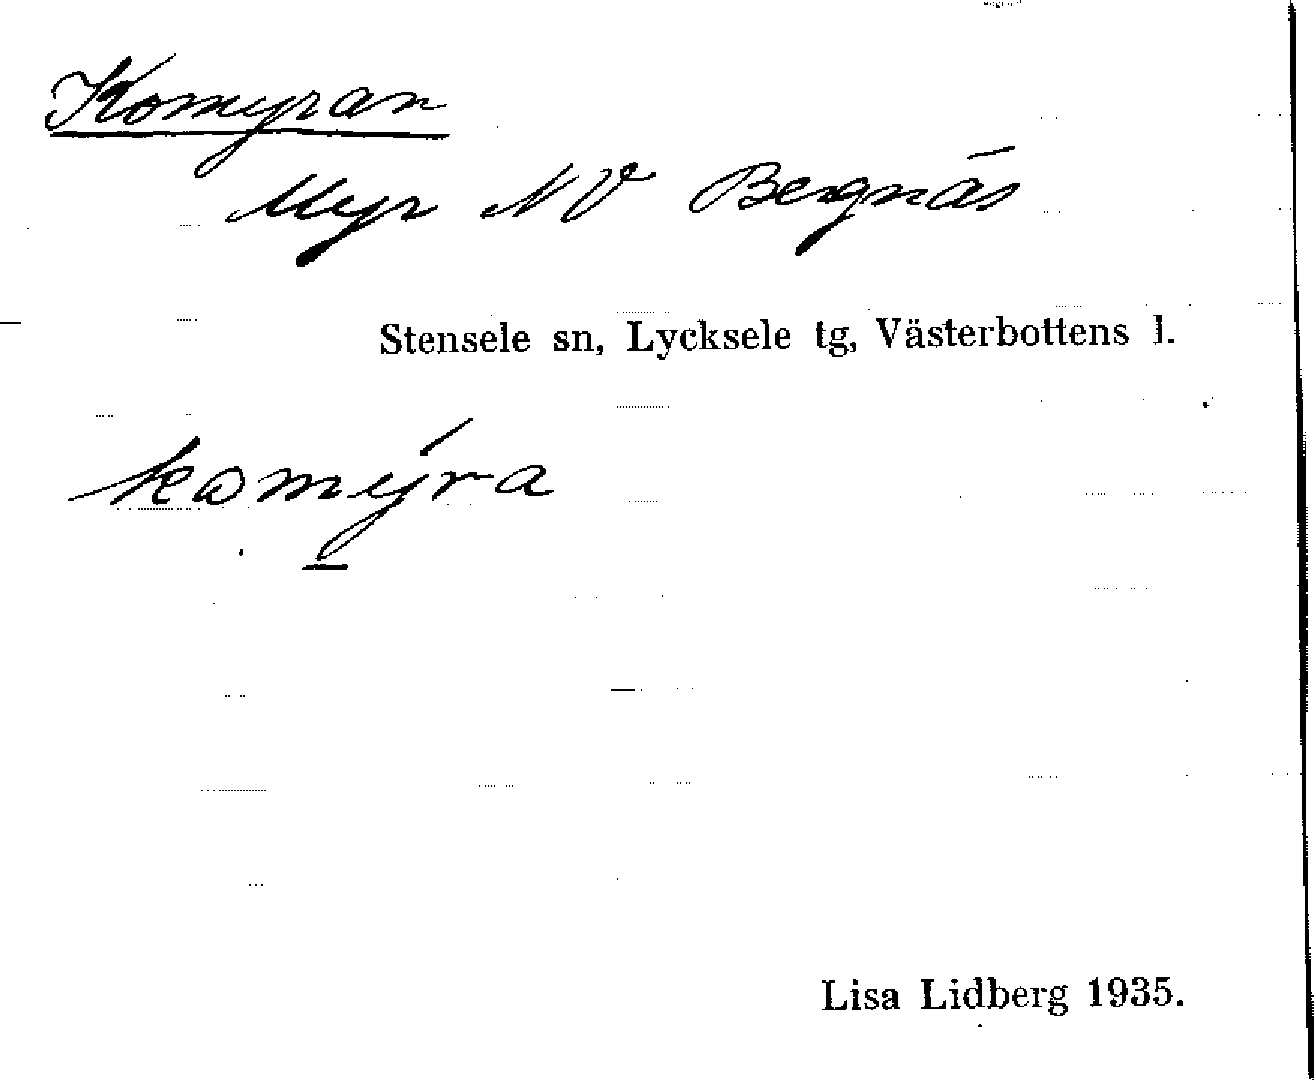 Komyran
Myr NV Bergnäs
Stensele sn, Lycksele tg, Västerbottens l.
komýra
Lisa Lidberg 1935.